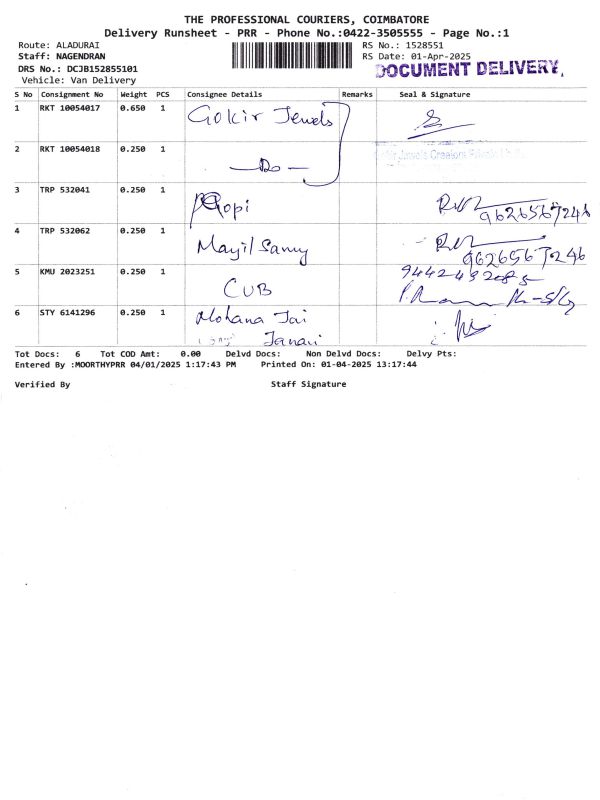 THE PROFESSIONAL COURIERS, COIMBATORE
Delivery Runsheet - PRR - Phone No.:0422-3505555 - Page No.:1
Route: ALADURAI RS No.: 1528551
Staff: NAGENDRAN RS Date: 01-Apr-2025
DRS No.: DCJB152855101 DOCUMENT DELIVERY.
Vehicle: Van Delivery
S No Consignment No Weight PCS Consignee Details Remarks Seal & Signature
1 RKT 10054017 0.650 1 Gokir Jewels
2 RKT 10054018 0.250 1 —Do—
3 TRP 532041 0.250 1 Gopi 9626567246
4 TRP 532062 0.250 1 Mayil Samy 9626567246
5 KMU 2023251 0.250 1 CUB
6 STY 6141296 0.250 1 Mohana Jai
Janani
Tot Docs: 6 Tot COD Amt: 0.00 Delvd Docs: Non Delvd Docs: Delvy Pts:
Entered By :MOORTHYPRR 04/01/2025 1:17:43 PM Printed On: 01-04-2025 13:17:44
Verified By Staff Signature